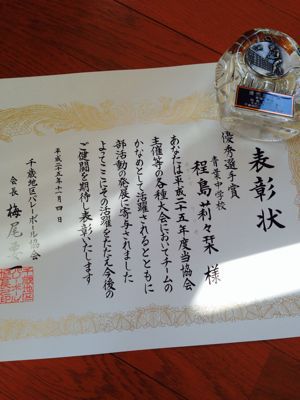 表彰状
優秀選手賞
青葉中学校
程島莉々菜 様
あなたは平成二十五年度当協会
主催等の各種大会においてチームの
かなめとして活躍されるとともに
部活動の発展に寄与されました
よってここにその活躍をたたえ今後の
ご健闘を期待し表彰いたします
平成二十五年十一月四日
千歳地区バレーボール協会
会長 梅尾